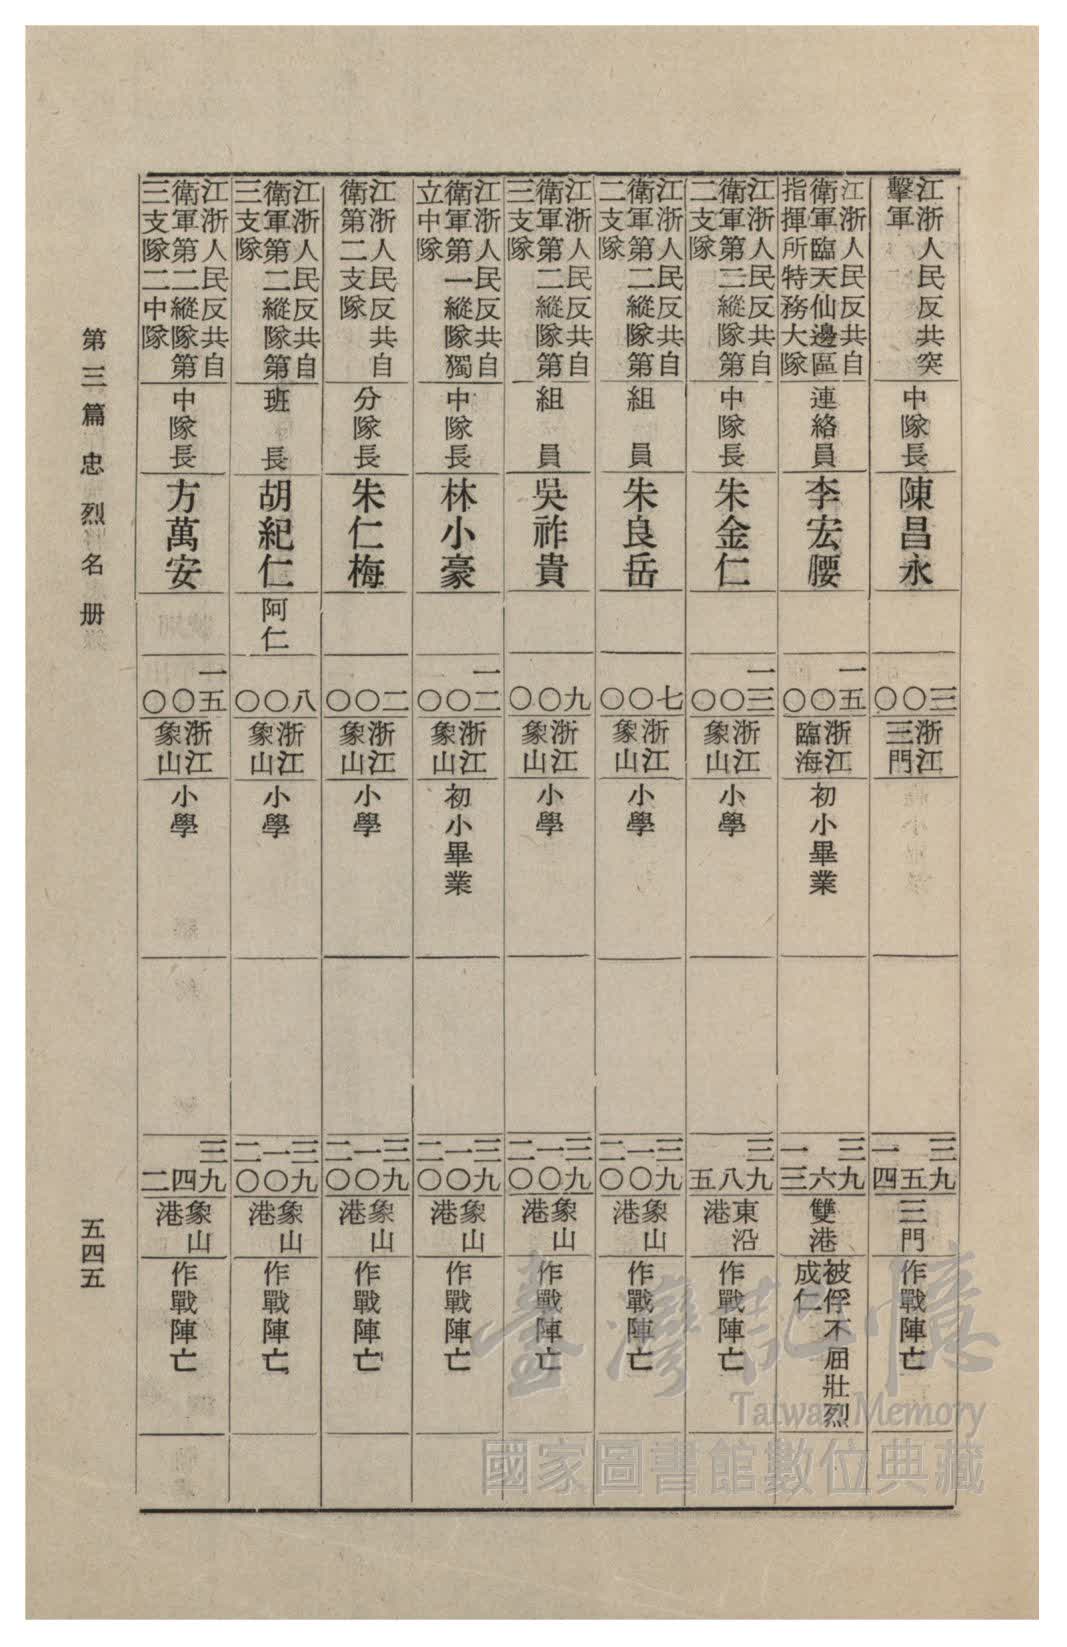 江浙人民反共突
擊軍
中隊長
陳昌永
三
〇
〇
浙江
三門
三九
五
一四
三門
作戰陣亡
江浙人民反共自
衛軍臨天仙邊區
指揮所特務大隊
連絡員
李宏腰
一五
〇
〇
浙江
臨海
初小畢業
三九
六
一三
雙港
被俘不屈壯烈
成仁
江浙人民反共自
衛軍第二縱隊第
二支隊
中隊長
朱金仁
一三
〇
〇
浙江
象山
小學
三九
八
五
東沿
港
作戰陣亡
江浙人民反共自
衛軍第二縱隊第
二支隊
組員
朱良岳
七
〇
〇
浙江
象山
小學
三九
一〇
二〇
象山
港
作戰陣亡
江浙人民反共自
衛軍第二縱隊第
三支隊
組員
吳祚貴
九
〇
〇
浙江
象山
小學
三九
一〇
二〇
象山
港
作戰陣亡
江浙人民反共自
衛軍第一縱隊獨
立中隊
中隊長
林小豪
一二
〇
〇
浙江
象山
初小畢業
三九
一〇
二〇
象山
港
作戰陣亡
江浙人民反共自
衛第二支隊
分隊長
朱仁梅
二
〇
〇
浙江
象山
小學
三九
一〇
二〇
象山
港
作戰陣亡
江浙人民反共自
衛軍第二縱隊第
三支隊
班長
胡紀仁
阿仁
八
〇
〇
浙江
象山
小學
三九
一〇
二〇
象山
港
作戰陣亡
江浙人民反共自
衛軍第二縱隊第
三支隊二中隊
中隊長
方萬安
一五
〇
〇
浙江
象山
小學
三九
四
二
象山
港
作戰陣亡
第三篇 忠烈名册
五四五
臺灣記憶
Taiwan Memory
國家圖書館數位典藏